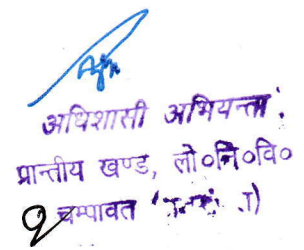 अधिशासी अभियन्ता
प्रान्तीय खण्ड, लो०नि०वि०
चम्पावत